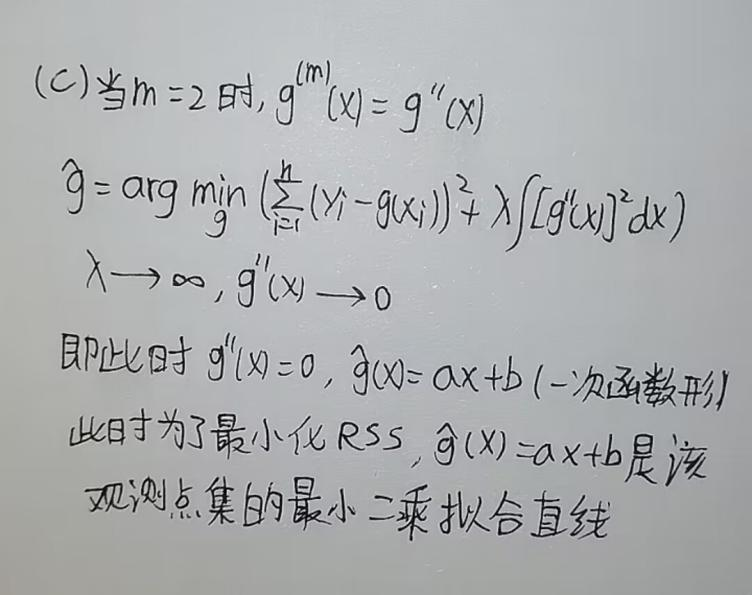 (C)当m=2时,g^(m)(x)=g''(x)
ĝ=arg min_g (∑_{i=1}^{n}(yi-g(xi))^2+λ∫[g''(x)]^2dx)
λ→∞,g''(x)→0
即此时g''(x)=0,ĝ(x)=ax+b(一次函数形)
此时为了最小化RSS,ĝ(x)=ax+b是该
观测点集的最小二乘拟合直线